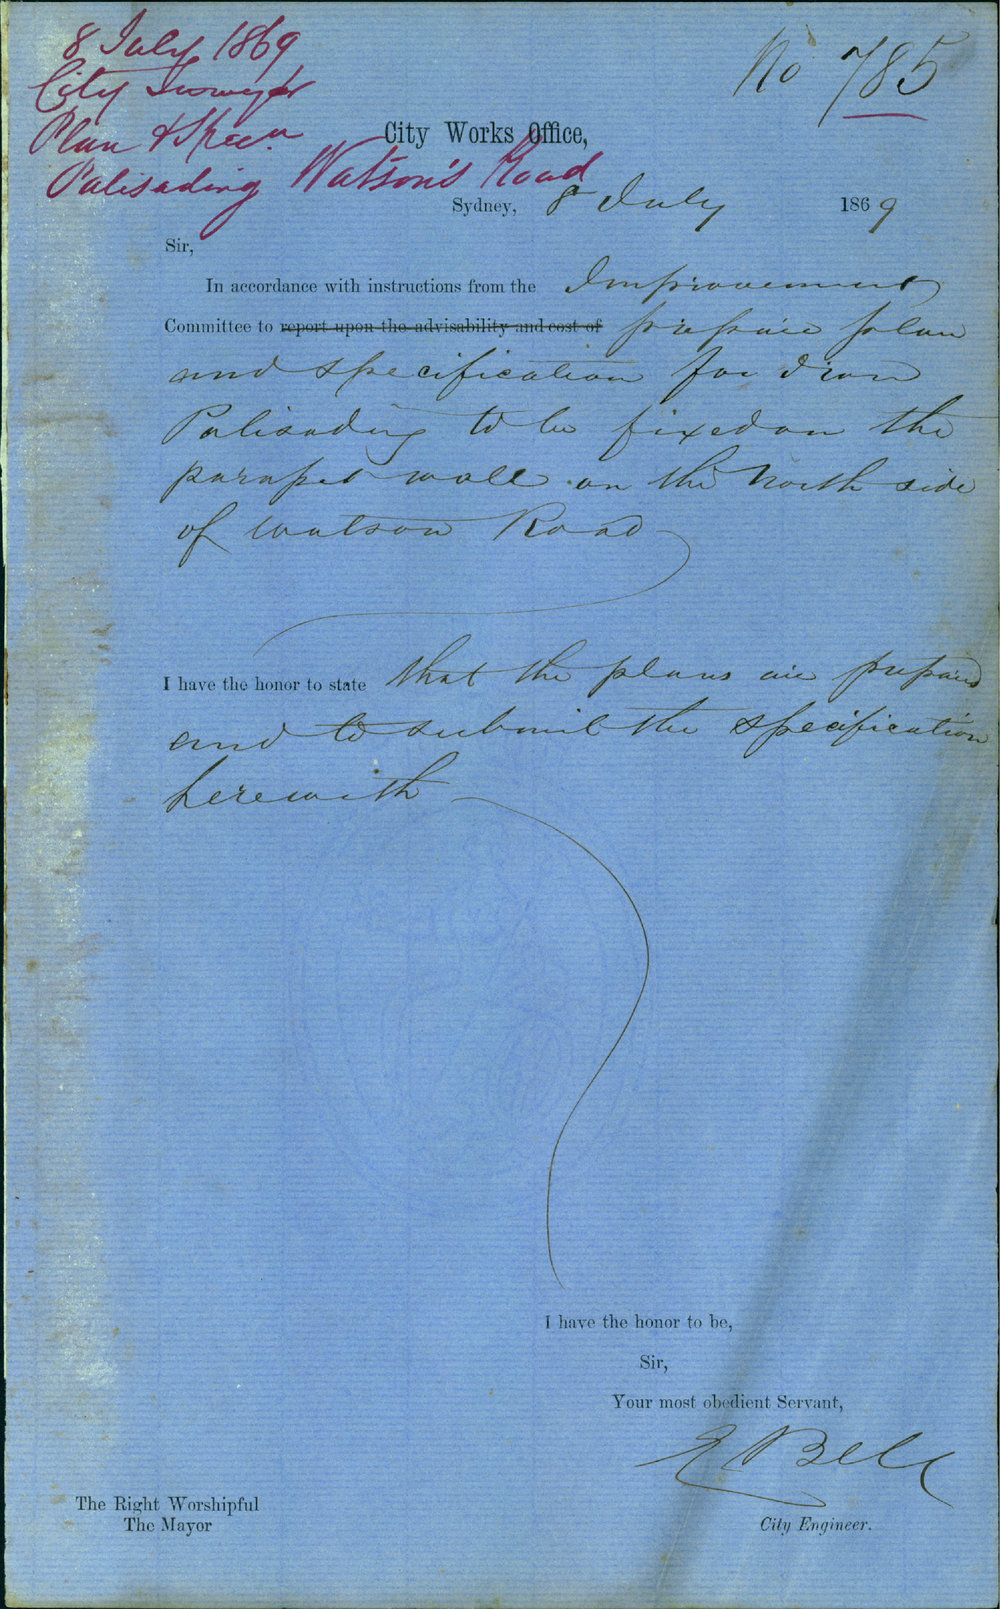 8 July 1869
City Surveyor
Plan & Specn
Palisading Watson's Road
No 785
City Works Office,
Sydney, 8 July 1869
Sir,
In accordance with instructions from the Improvement
Committee to report upon the advisability and cost of prepare plan
and specification for Iron
Palisading to be fixed on the
parapet wall on the North side
of Watson Road
I have the honor to state that the plans are prepared
and to submit the specification
herewith
I have the honor to be,
Sir,
Your most obedient Servant,
E Bell
City Engineer.
The Right Worshipful
The Mayor